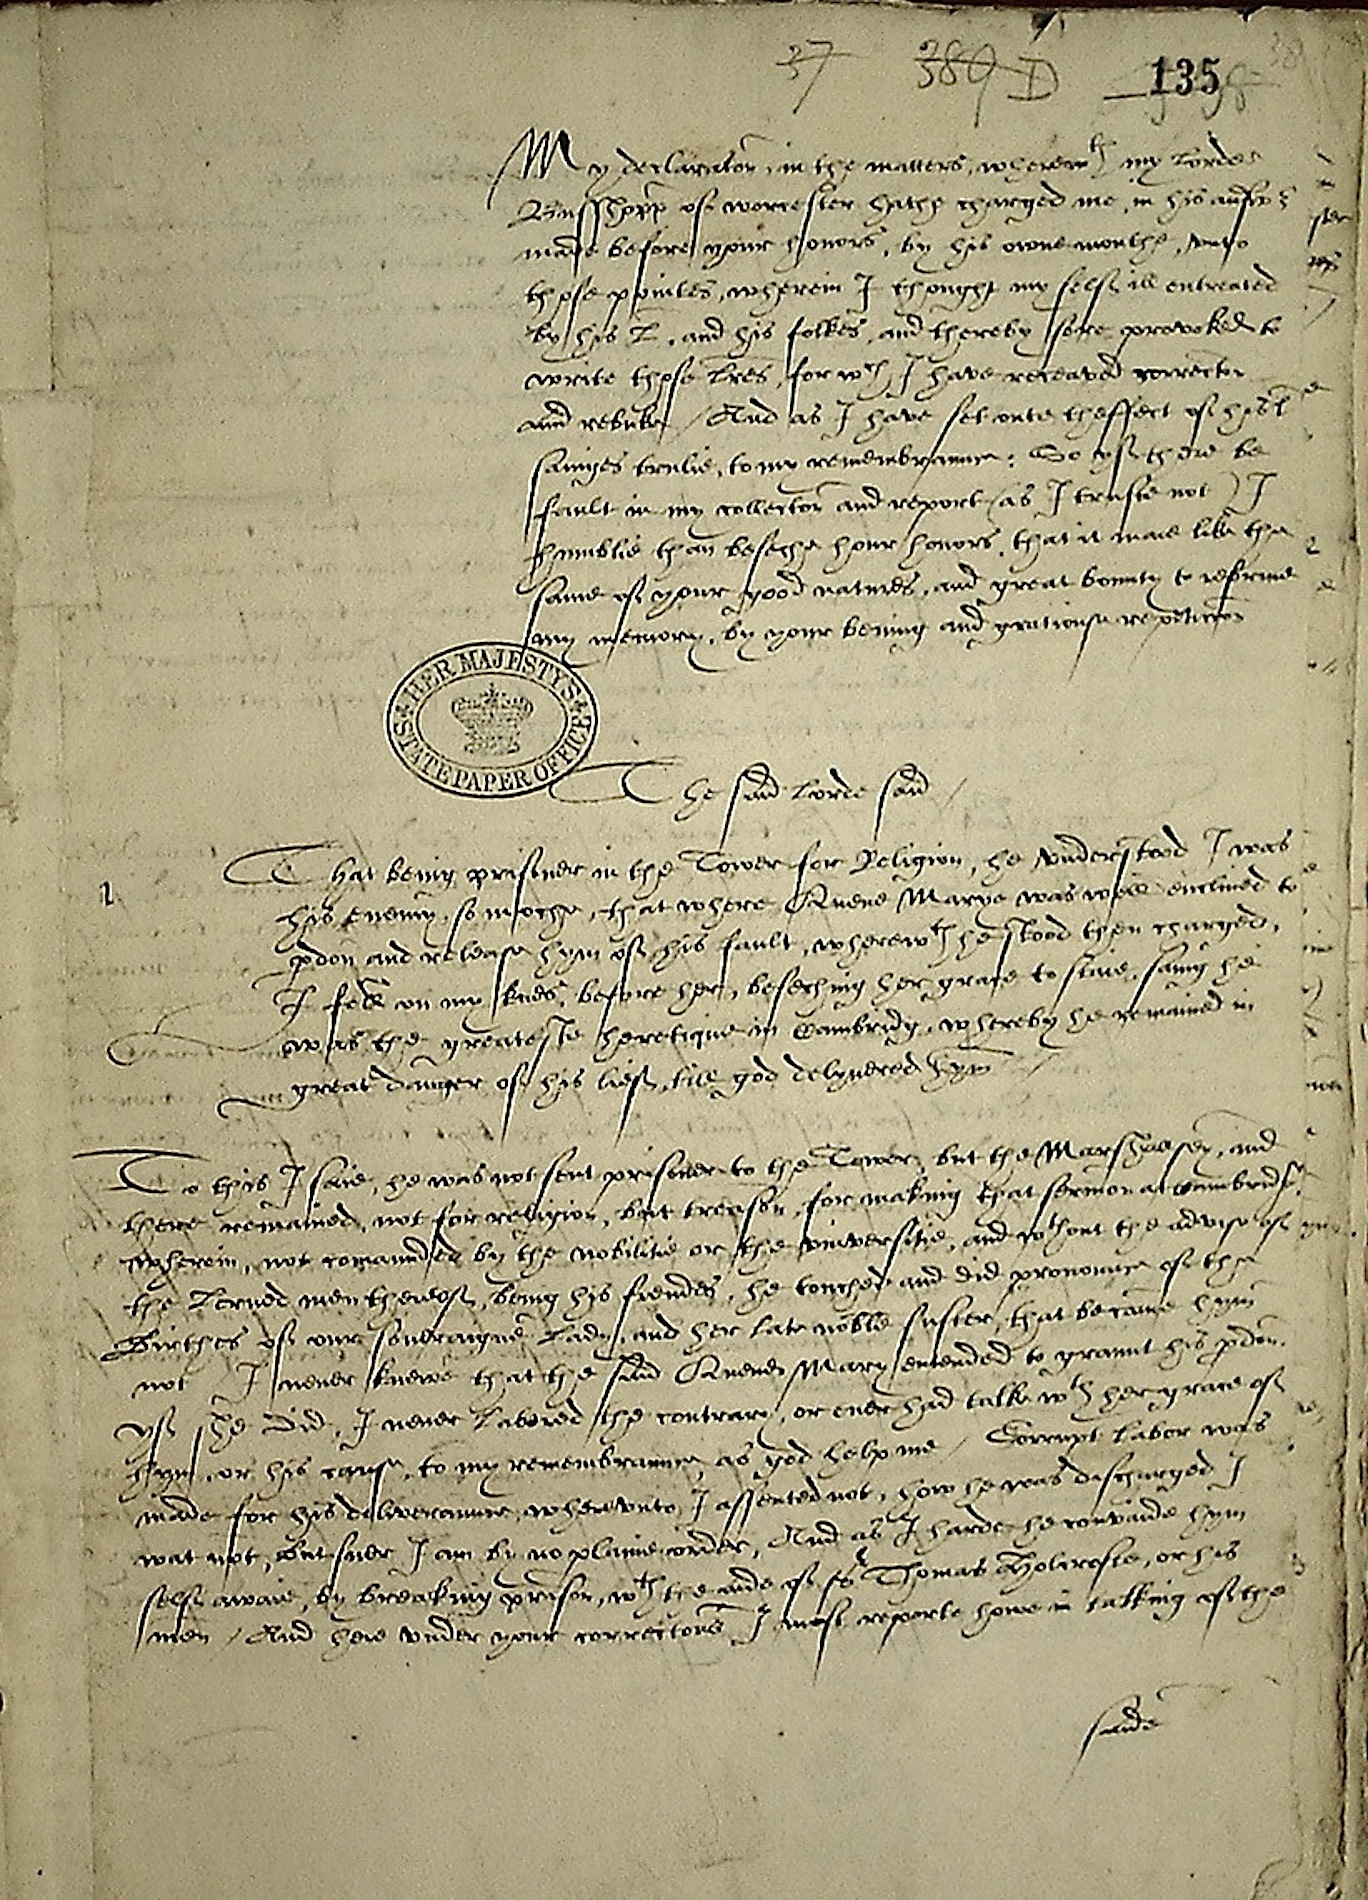 37 389 D 135
My declaracon, in the matters, wherewth my Lorde
Busshopp of worcester hathe charged me, in his
made before your honors, by his owne mouthe, unto
those pointes, wherein I thought my self ill entreated
by his L, and his folkes, and thereby sore provoked to
write those lres, for wch I have receaved correcton
and rebuke / And as I have set oute theffect of his L
sainges trulie, to my remembraunce: So yf there be
fault in my collecton and report (as I truste not) I
humblie than beseche your honors, that it maie like the
same of your good natures, and great bounty to reforme
my memory, by your bening and gratiouse repeticon
HER MAJESTY'S STATE PAPER OFFICE
The said Lorde said /
1 That being prisoner in the Tower for Religion, he understood I was
his Enemy, so moche, that where Quene Marye was well enclined to
pdon and release hym of his fault, wherewth he stood then charged,
I fell on my knees before her, beseching her grace to staie, saing he
was the greateste heretique in Cambridg, whereby he remained in
great daunger of his lief, till god delyuered hym
To this I saie, he was not sent prisoner to the Tower, but the Marshalsey, and
there remained, not for religion, but treason, for making that sermon at Cambridge,
wherein, not comaunded by the nobilitie or the universitie, and wthout the advise of
the Lerned men thereof, being his frendes, he touched and did pronounce of the
Birthes of our soueraigne Lady, and her late noble suster, that became hym
not I neuer knewe that the said Quene Mary entended to graunt his pdon.
yf she did, I neuer Labored the contrary, or euer had talke wth her grace of
hym, or his cause, to my remembraunce, as god help me / Corrupt labor was
made for his deliveraunce, wherunto I assented not, how he was discharged I
wat not, But suer I am by no plaine order, And as I harde he convaide hym
self awaie, by breaking prison, wth the aide of Sr Thomas Holcrofte, or his
men / And here under your correctons I must reporte howe in talking of the
saide